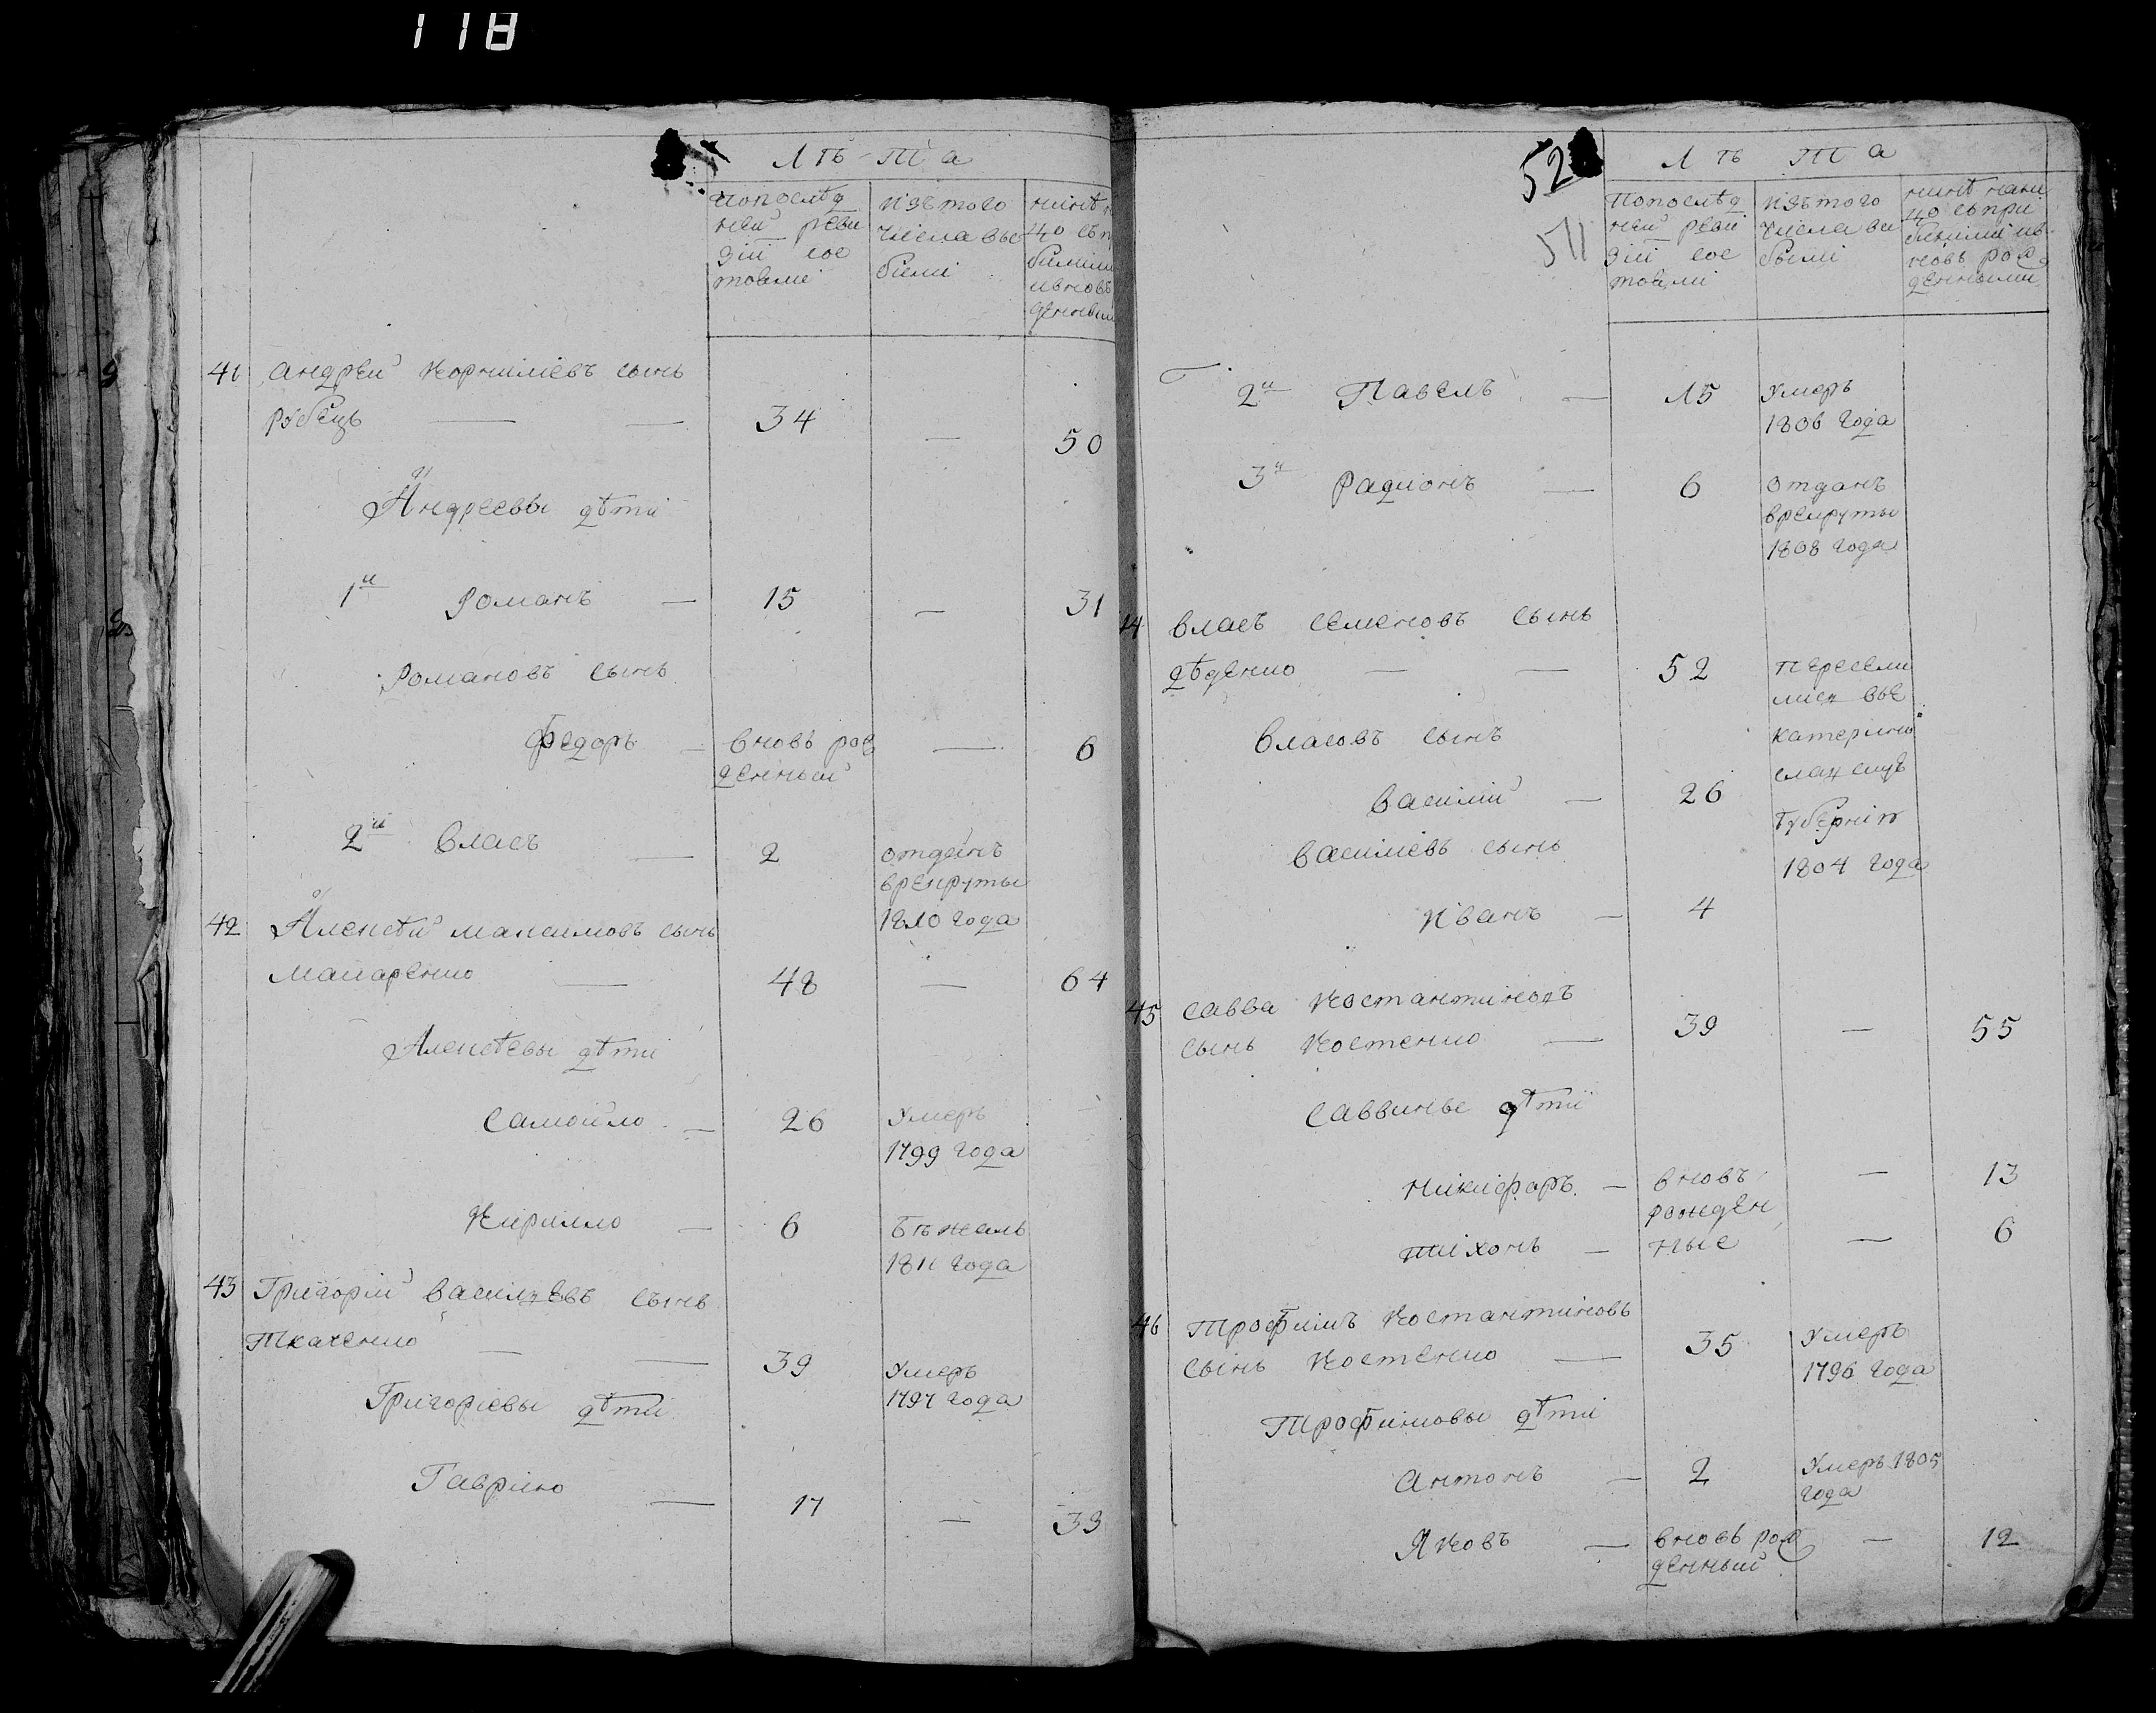 118
Лѣта
Попослѣд
ней реви
зіи сос
тояли
Изътого
числа вы
были
41 Андрей Корниліевъ сынъ
Робецъ — — 34 — 50
Андреевы дѣти
1й Романъ — 15 — 31
Романовъ сынъ
Федоръ — вновь рож
денный — 6
2й Власъ — 2 отданъ
врекруты
1810 года
42 Алексѣй Максимовъ сынъ
Макаренко — 48 — 64
Алексѣевы дѣти
Самойло — 26 Умеръ
1799 года
Кирилло — 6 Бѣжалъ
1811 года
43 Григорій Васильевъ сынъ
Ткаченко — — 39 Умеръ
1797 года
Григоріевы дѣти
Гаврило — 17 — 33
52
511
Лѣта
Попослѣд
ней реви
зіи сос
тояли
Изътого
числа вы
были
нынѣ нали
цо съпри
былыми ив
новь рож
денными
2й Павелъ — 15 Умеръ
1806 года
3й Радионъ — 6 Отданъ
врекруты
1808 года
44 Власъ Семеновъ сынъ
Дѣденко — — 52 пересели
лися вЪе
Власовъ сынъ катерино
славскую
Василий — 26 губернію
Василіевъ сынъ 1804 года
Иванъ — 4
45 Савва Костантиновъ
сынъ Костенко — 39 — 55
Саввины дѣти
Никифоръ — вновь — 13
рожден
Тихонъ — ные — 6
46 Трофимъ Костантиновъ
сынъ Костенко — 35 Умеръ
1796 года
Трофимовы дѣти
Антонъ — 2 Умеръ 1805
года
Яковъ — вновь рож — 12
денный